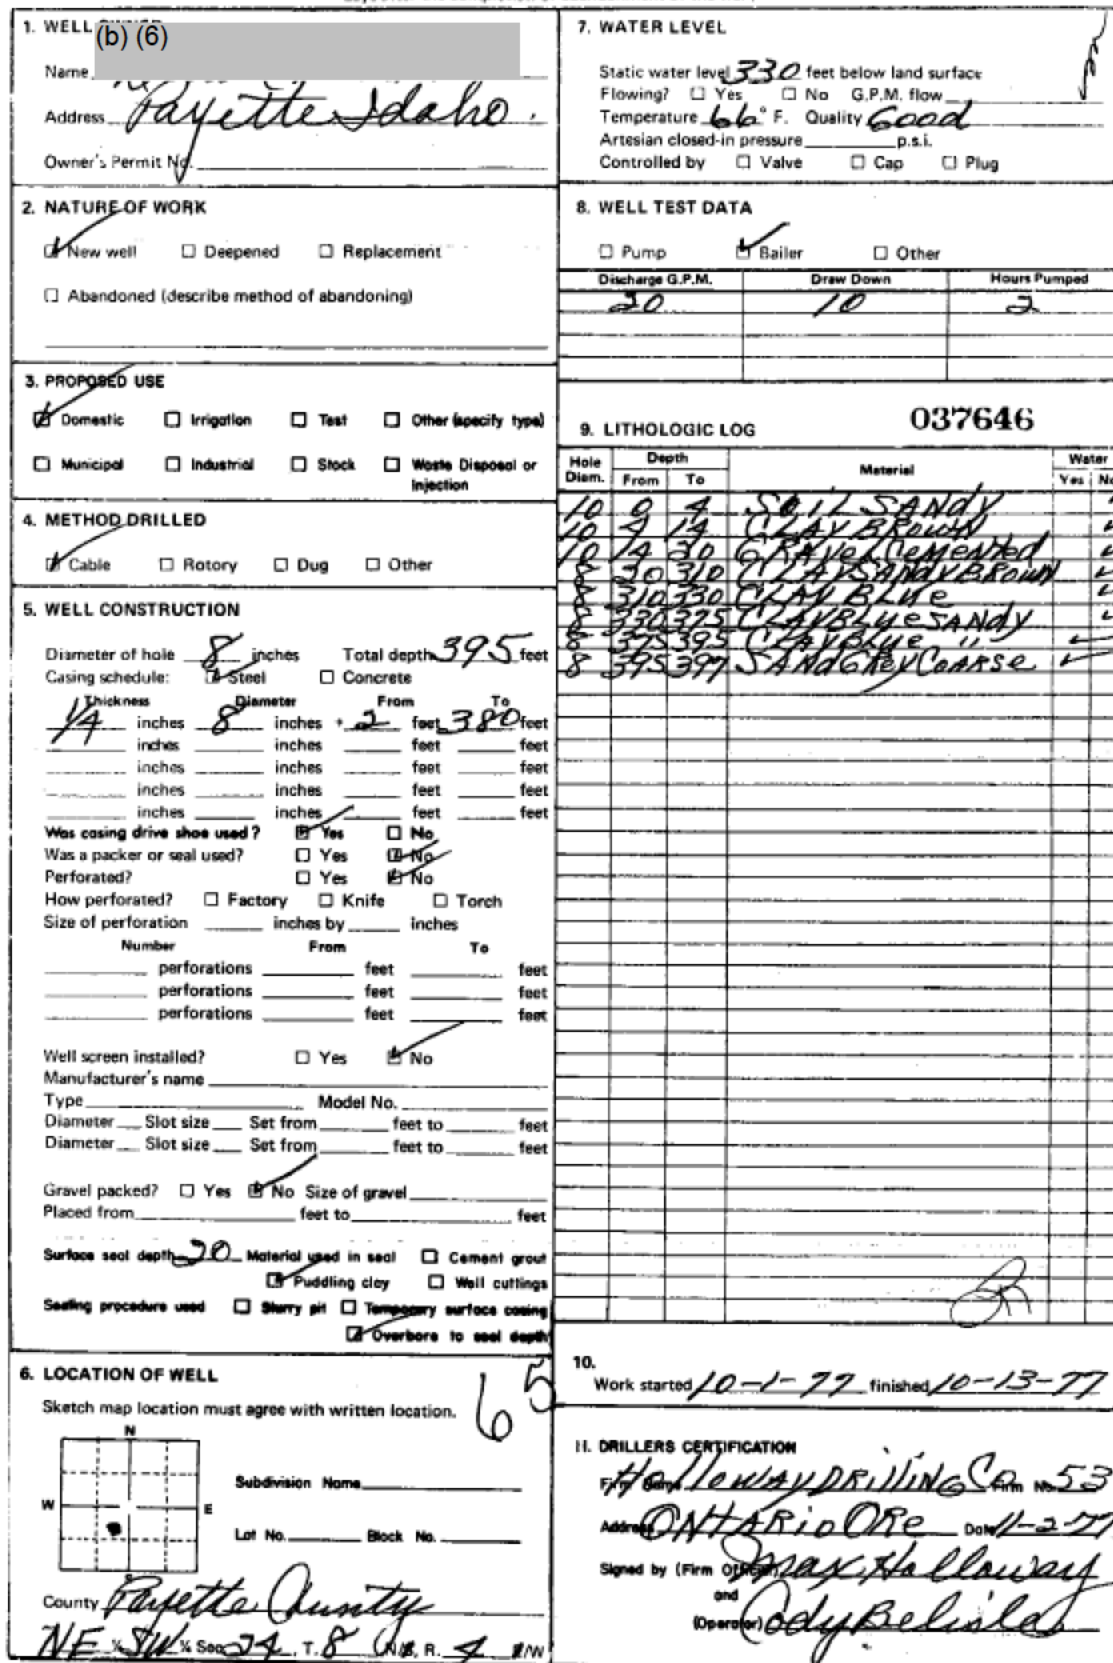 1. WELL OWNER
(b) (6)
Name
Address Payette Idaho.
Owner's Permit No.
2. NATURE OF WORK
New well Deepened Replacement
Abandoned (describe method of abandoning)
3. PROPOSED USE
Domestic Irrigation Test Other (specify type)
Municipal Industrial Stock Waste Disposal or Injection
4. METHOD DRILLED
Cable Rotory Dug Other
5. WELL CONSTRUCTION
Diameter of hole 8 inches Total depth 395 feet
Casing schedule: Steel Concrete
Thickness Diameter From To
1/4 inches 8 inches + 2 feet 380 feet
inches inches feet feet
inches inches feet feet
inches inches feet feet
inches inches feet feet
Was casing drive shoe used? Yes No
Was a packer or seal used? Yes No
Perforated? Yes No
How perforated? Factory Knife Torch
Size of perforation inches by inches
Number From To
perforations feet feet
perforations feet feet
perforations feet feet
Well screen installed? Yes No
Manufacturer's name
Type Model No.
Diameter Slot size Set from feet to feet
Diameter Slot size Set from feet to feet
Gravel packed? Yes No Size of gravel
Placed from feet to feet
Surface seal depth 20 Material used in seal Cement grout
Puddling clay Well cuttings
Sealing procedure used Slurry pit Temporary surface casing
Overbore to seal depth
6. LOCATION OF WELL
65
Sketch map location must agree with written location.
N
W E
Subdivision Name
Lot No. Block No.
County Payette County
NE ¼ SW ¼ Sec. 24, T. 8 N/S, R. 4 E/W
7. WATER LEVEL
Static water level 330 feet below land surface
Flowing? Yes No G.P.M. flow
Temperature 66° F. Quality Good
Artesian closed-in pressure p.s.i.
Controlled by Valve Cap Plug
8. WELL TEST DATA
Pump Bailer Other
Discharge G.P.M. Draw Down Hours Pumped
20 10 2
9. LITHOLOGIC LOG 037646
Hole Diam. Depth From To Material Water Yes No
10 0 4 SOIL SANDY
10 4 14 CLAY BROWN
10 14 30 GRAVEL Cemented
8 30 310 CLAY SANDY BROWN
8 310 330 CLAY BLUe
8 330 375 CLAY BLUe SANDY
8 375 395 CLAY BLUe "
8 395 397 SAND GREY COARSE
10.
Work started 10-1-77 finished 10-13-77
11. DRILLERS CERTIFICATION
Firm Name Holloway DRILLING Co Firm No. 53
Address ONTARIO ORe Date 11-2-77
Signed by (Firm Official) Max Holloway
and
(Operator) Cody Belisle